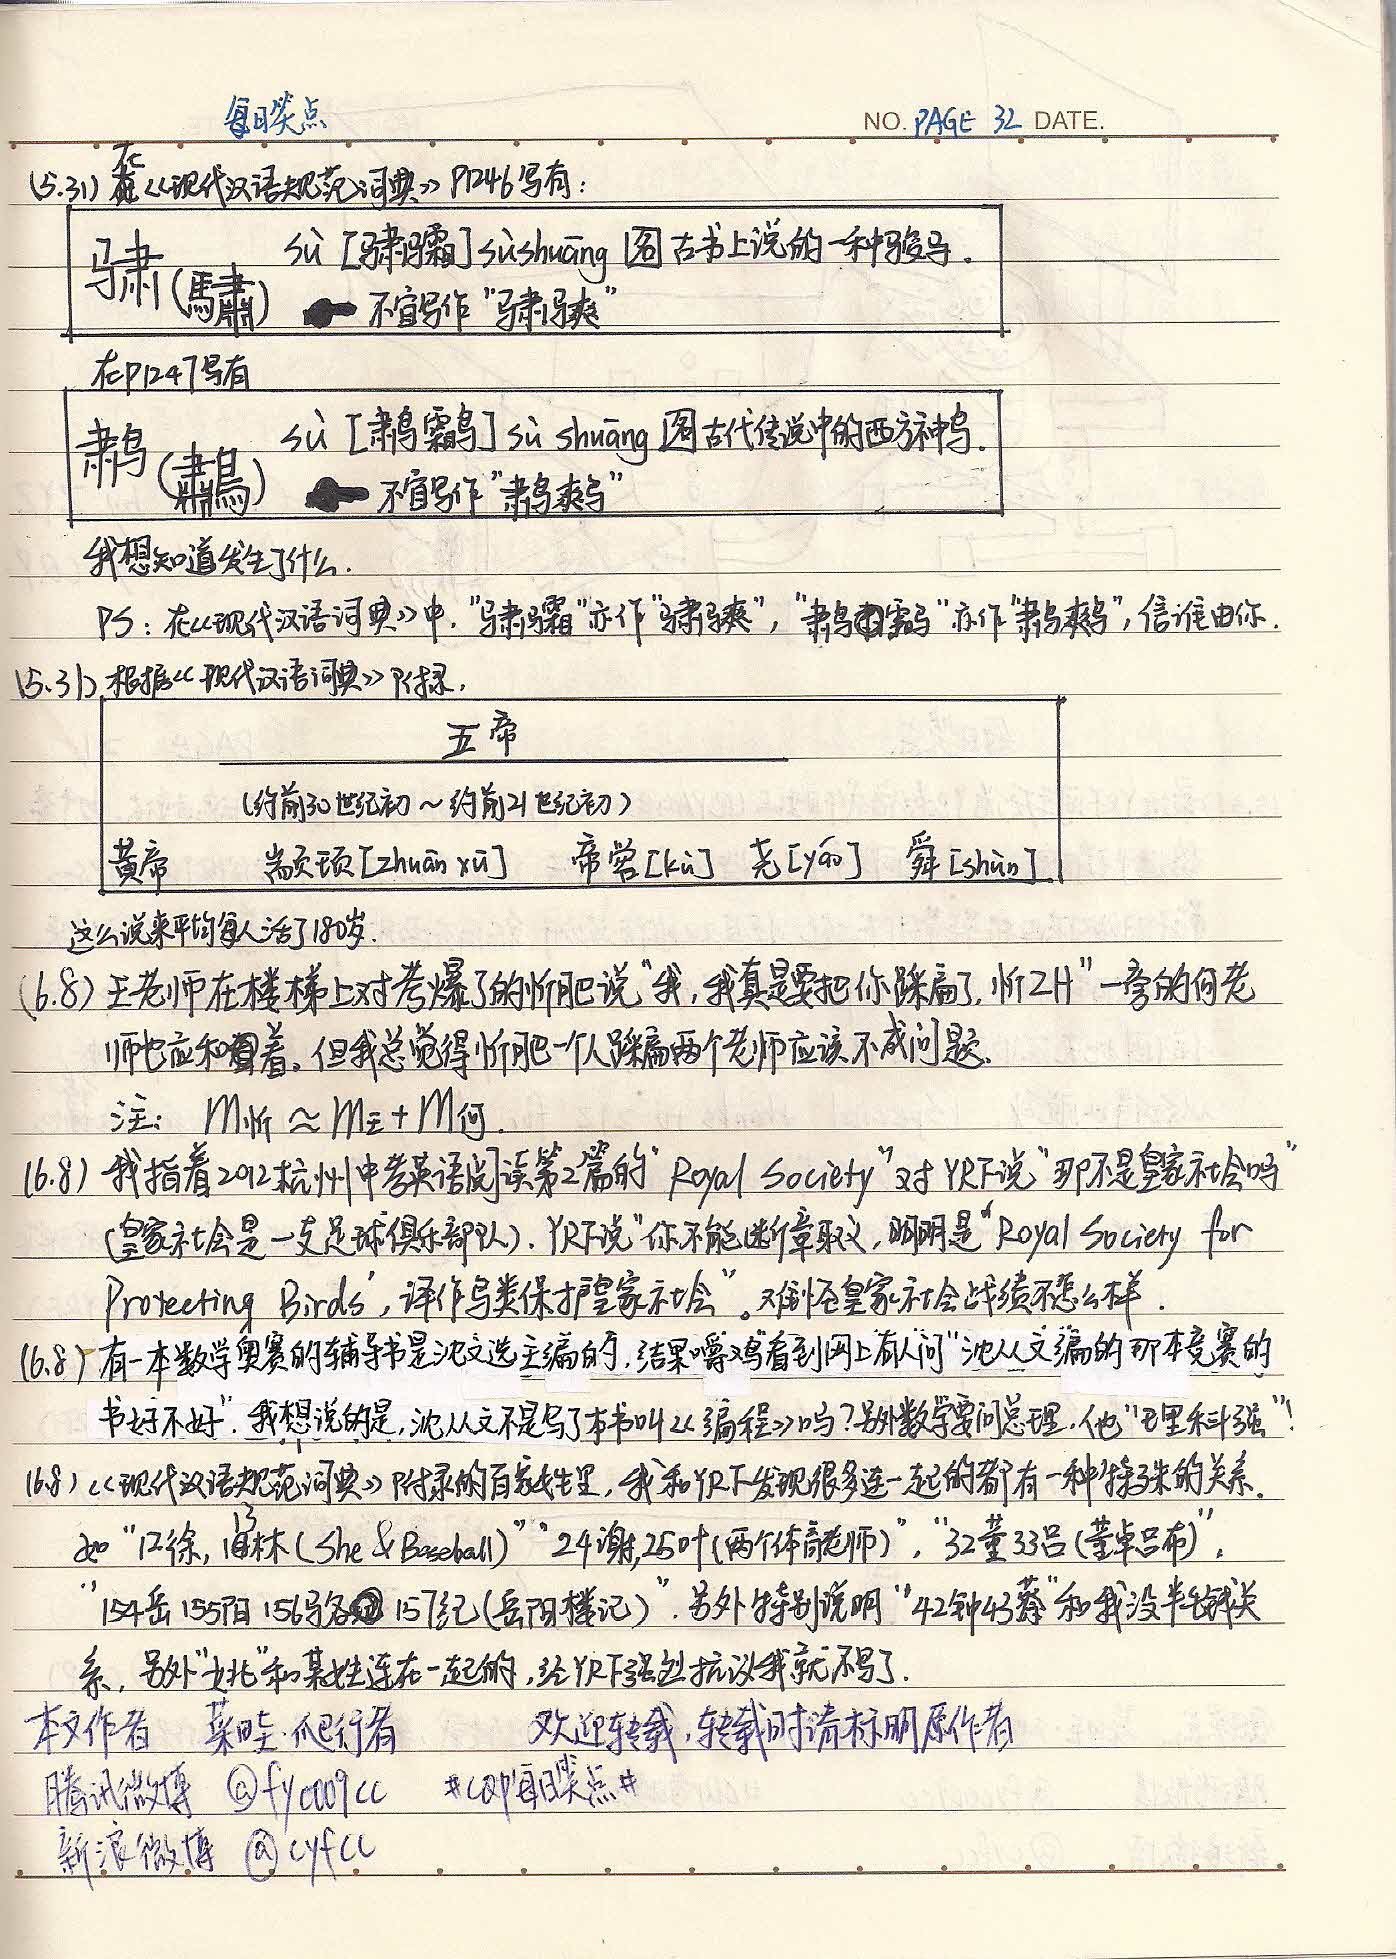 每日笑点
NO. PAGE 32 DATE.
(5.31) 在《现代汉语规范词典》P1246写有:
骕(驌) sù [骕骦] sùshuāng 名 古书上说的一种骏马.
☛ 不宜写作"骕骦"
在P1247写有
鹔(鷫) sù [鹔鹴] sù shuāng 名 古代传说中的西方神鸟.
☛ 不宜写作"鹔鷞"
我想知道发生了什么.
PS: 在《现代汉语词典》中,"骕骦"亦作"骕䮣","鹔鹴"亦作"鹔鷞",信谁由你.
(5.31) 根据《现代汉语词典》附录,
五帝
(约前30世纪初~约前21世纪初)
黄帝 颛顼[zhuān xū] 帝喾[kù] 尧[yáo] 舜[shùn]
这么说来平均每人活了180岁.
(6.8) 王老师在楼梯上对考爆了的忻肥说"我,我真是要把你踩扁了,忻ZH"一旁的何老
师也应和着。但我总觉得忻肥一个人踩扁两个老师应该不成问题.
注: m忻≈m王+m何.
(6.8) 我指着2012杭州中考英语阅读第2篇的"Royal Society"对YR下说"那不是皇家社会吗"
(皇家社会是一支足球俱乐部队). YR下说"你不能断章取义,明明是'Royal Society for
Protecting Birds',译作鸟类保护皇家社会"。难怪皇家社会战绩不怎么样.
(6.8) 有一本数学奥赛的辅导书是沈文选主编的,结果"嚼鸡"看到网上有人问"沈从文编的那本竞赛的
书好不好". 我想说的是,沈从文不是写了本书叫《编程》吗?另外数学要问总理,他"理科强"!
(6.8) 《现代汉语规范词典》附录的百家姓里,我和YR下发现很多连一起的都有一种特殊的关系.
如"12徐,13林(She & Baseball)""24谢,25叶(两个体育老师)","32董33吕(董卓吕布)",
"154岳 155阳 156骆 157纪(岳阳楼记)". 另外特别说明"42钟43蔡"和我没半毛钱关
系,另外"姚"和某姓连在一起的,经YR下强烈抗议我就不写了.
本文作者 菜叶·爬行者 欢迎转载,转载时请标明原作者
腾讯微博 @fyc009cc #CQP每日笑点#
新浪微博 @cyfcc